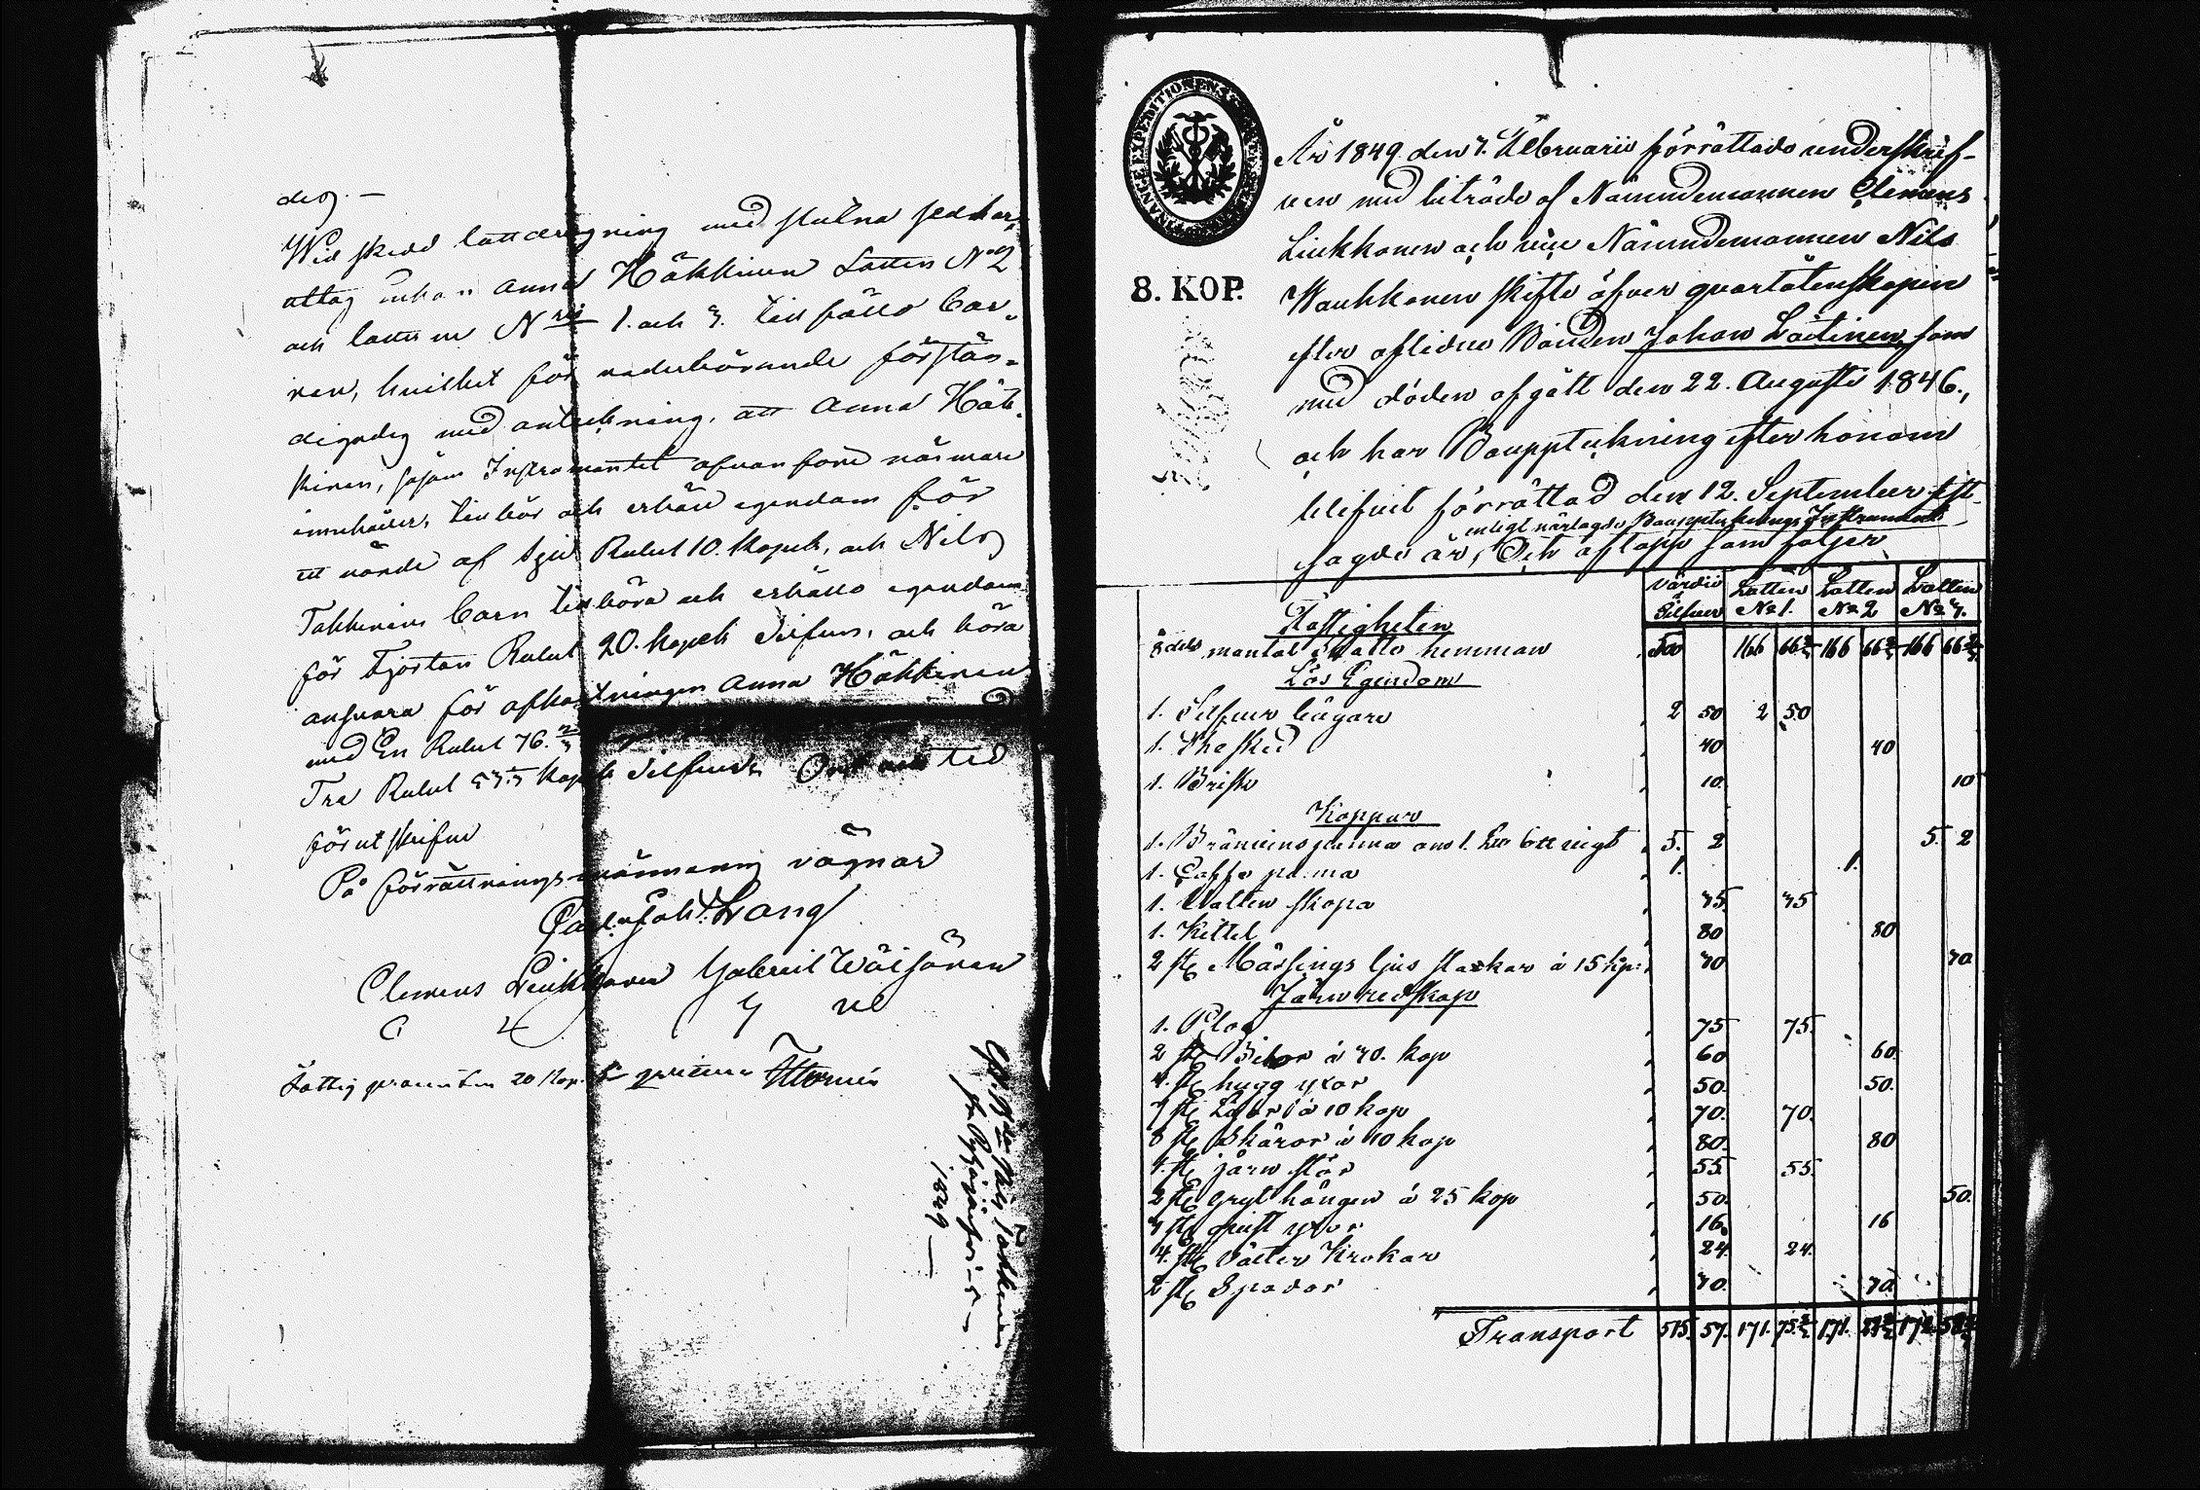 des. —
Wid skedd lottdragning med slutna sedlar
uttog enkan Anna Häkkinen Lotten No 2
och lotterne N 1. och 3. tillföllo Bar-
nen, hvilket för vederbörande förstän-
digades med anteckning, att Anna Häk-
kinen, såsom Instrumentet ofvanföre närmare
innehåller, tillhör och erhåll egendom för
ett värde af Rubel 10. Kopek, och Nils
Takkinens Barn tillhöra och erhålla egendom
för Fjorton Rubel 20. Kopek Silfver, och böra
ansvara för afkortningen Anna Häkkinen
med En Rubel 76. 2/3
Tre Rubel 53 1/3 Kopek Silfver. Ort och tid
förutskrifne
På förrättningsmännens vägnar
Carl Joh. Lang
Clemens Leukkonen Gabriel Wäisänen
C L G W
Fattig procenten 20 Kop. qvitteras
1849 —
8. KOP.
År 1849 den 7. Februarii förrättade underskrif-
ven med biträde af Nämndemannen Clemens
Leukkonen och vice Nämndemannen Nils
Wauhkonen skifte öfver qvarlåtenskapen
efter aflidne Bonden Johan Laitinen, som
med döden afgått den 22. Augusti 1846.,
och har Bouppteckning efter honom
blifvit förrättad den 12. September sist-
enligt närlagde Bouppteknings Instrument
sagde år, Och aflopp som följer
Värdie Silfver Lotten No 1. Lotten No 2 Lotten No 3.
Fastigheten
8dels mantal Skatte hemman 500 166 66 2/3 166 66 2/3 166 66 2/3
Lös Egendom
1. Silfver bägare 2 50 2 50
1. The sked 40 40
1. Briske 10. 10
Koppar
1. Bränvinspanna om 1. 6tt vigt 5. 2 5. 2
1. Caffe panna 1. 1.
1. Vatten skopa 75. 75
1. Kittel 80 80
2 st Mässings ljus stakar à 15 kop: 30 30
Järn redskap
1. Plog 75 75.
2 st Bilor à 30. kop 60. 60.
4. st hugg yxor 50. 50.
7 st Liar à 10 kop 70. 70.
8 st Skäror à 10 kop 80. 80
1. st järn stör 55. 55.
2 st gryt hängen à 25 kop 50. 50.
st yxor 16. 16
4. st Krokar 24. 24.
2 st Spador 30. 30
Transport 515. 57. 171. 75 2/3 171.